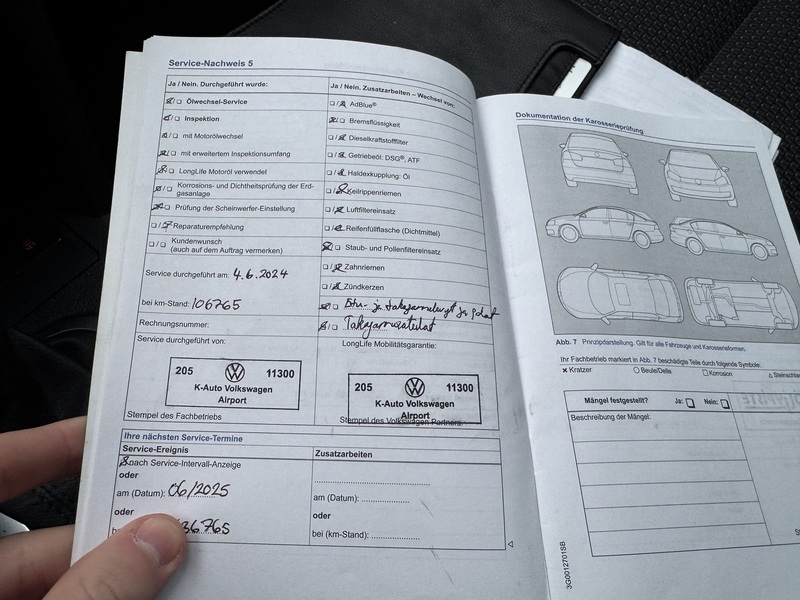 Service-Nachweis 5
Ja / Nein. Durchgeführt wurde:
☒/☐ Ölwechsel-Service
☒/☐ Inspektion
☒/☐ mit Motorölwechsel
☒/☐ mit erweitertem Inspektionsumfang
☒/☐ LongLife Motoröl verwendet
☒/☐ Korrosions- und Dichtheitsprüfung der Erd-
gasanlage
☒/☐ Prüfung der Scheinwerfer-Einstellung
☐/☒ Reparaturempfehlung
☐/☐ Kundenwunsch
(auch auf dem Auftrag vermerken)
Service durchgeführt am: 4.6.2024
bei km-Stand: 106765
Rechnungsnummer:
Service durchgeführt von:
205 11300
K-Auto Volkswagen
Airport
Stempel des Fachbetriebs
Ja / Nein. Zusatzarbeiten – Wechsel von:
☐/☒ AdBlue®
☒/☐ Bremsflüssigkeit
☐/☒ Dieselkraftstofffilter
☐/☒ Getriebeöl: DSG®, ATF
☐/☒ Haldexkupplung: Öl
☐/☒ Keilrippenriemen
☐/☒ Luftfiltereinsatz
☐/☒ Reifenfüllflasche (Dichtmittel)
☒/☐ Staub- und Pollenfiltereinsatz
☐/☒ Zahnriemen
☐/☒ Zündkerzen
Etu- ja takajarrulevyt ja palat
Takajarrusatulat
LongLife Mobilitätsgarantie:
205 11300
K-Auto Volkswagen
Airport
Stempel des Volkswagen Partners:
Ihre nächsten Service-Termine
Service-Ereignis
☒ nach Service-Intervall-Anzeige
oder
am (Datum): 06/2025
oder
36765
Zusatzarbeiten
am (Datum):
oder
bei (km-Stand):
Dokumentation der Karosserieprüfung
Abb. 7 Prinzipdarstellung. Gilt für alle Fahrzeuge und Karosserieformen.
Ihr Fachbetrieb markiert in Abb. 7 beschädigte Teile durch folgende Symbole:
× Kratzer ○ Beule/Delle ☐ Korrosion △ Steinschla
Mängel festgestellt? Ja: ☐ Nein: ☐
Beschreibung der Mängel:
3G0012701SB